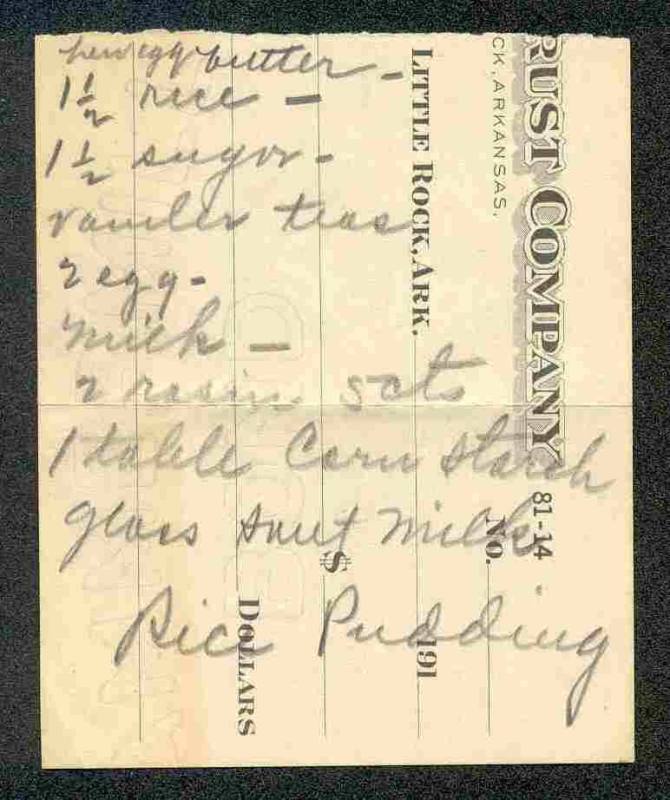 hen egg butter -
1 1/2 rice -
1 1/2 sugar -
vaniler teas
2 egg -
milk -
2 rasin 5cts
1 table Corn starch
glass sweet milk
Rice Pudding
RUST COMPANY
CK, ARKANSAS.
LITTLE ROCK, ARK.
191
No.
81-14
$
DOLLARS